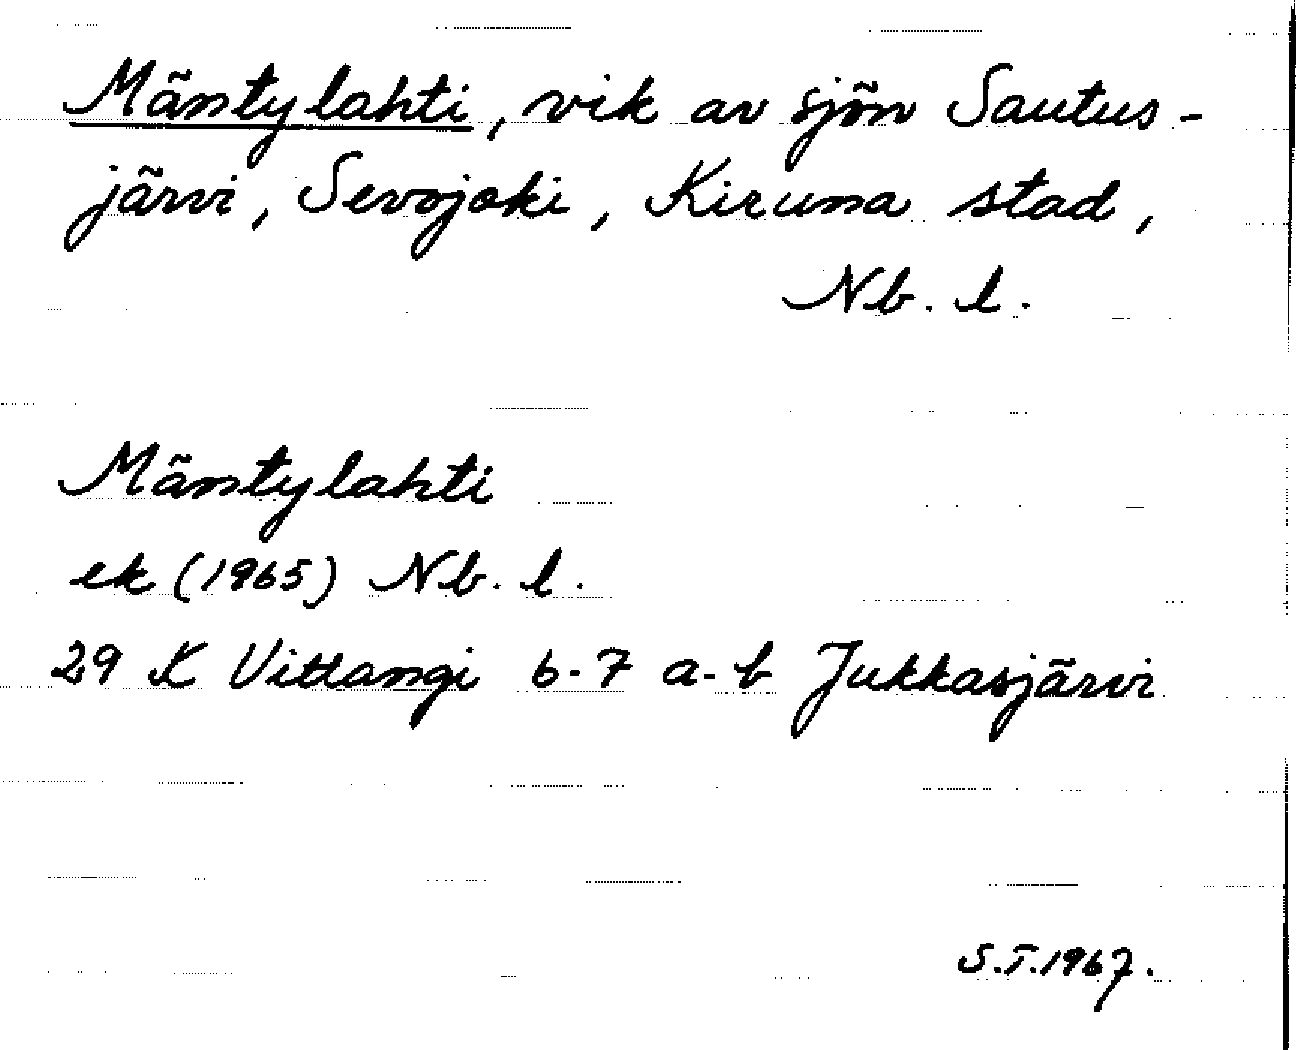 Mäntylahti, vik av sjön Sautus-
järvi, Sevojoki, Kiruna stad,
Nb. l.
Mäntylahti
ek (1965) Nb. l.
29 K Vittangi 6-7 a-b Jukkasjärvi
S.T.1967.